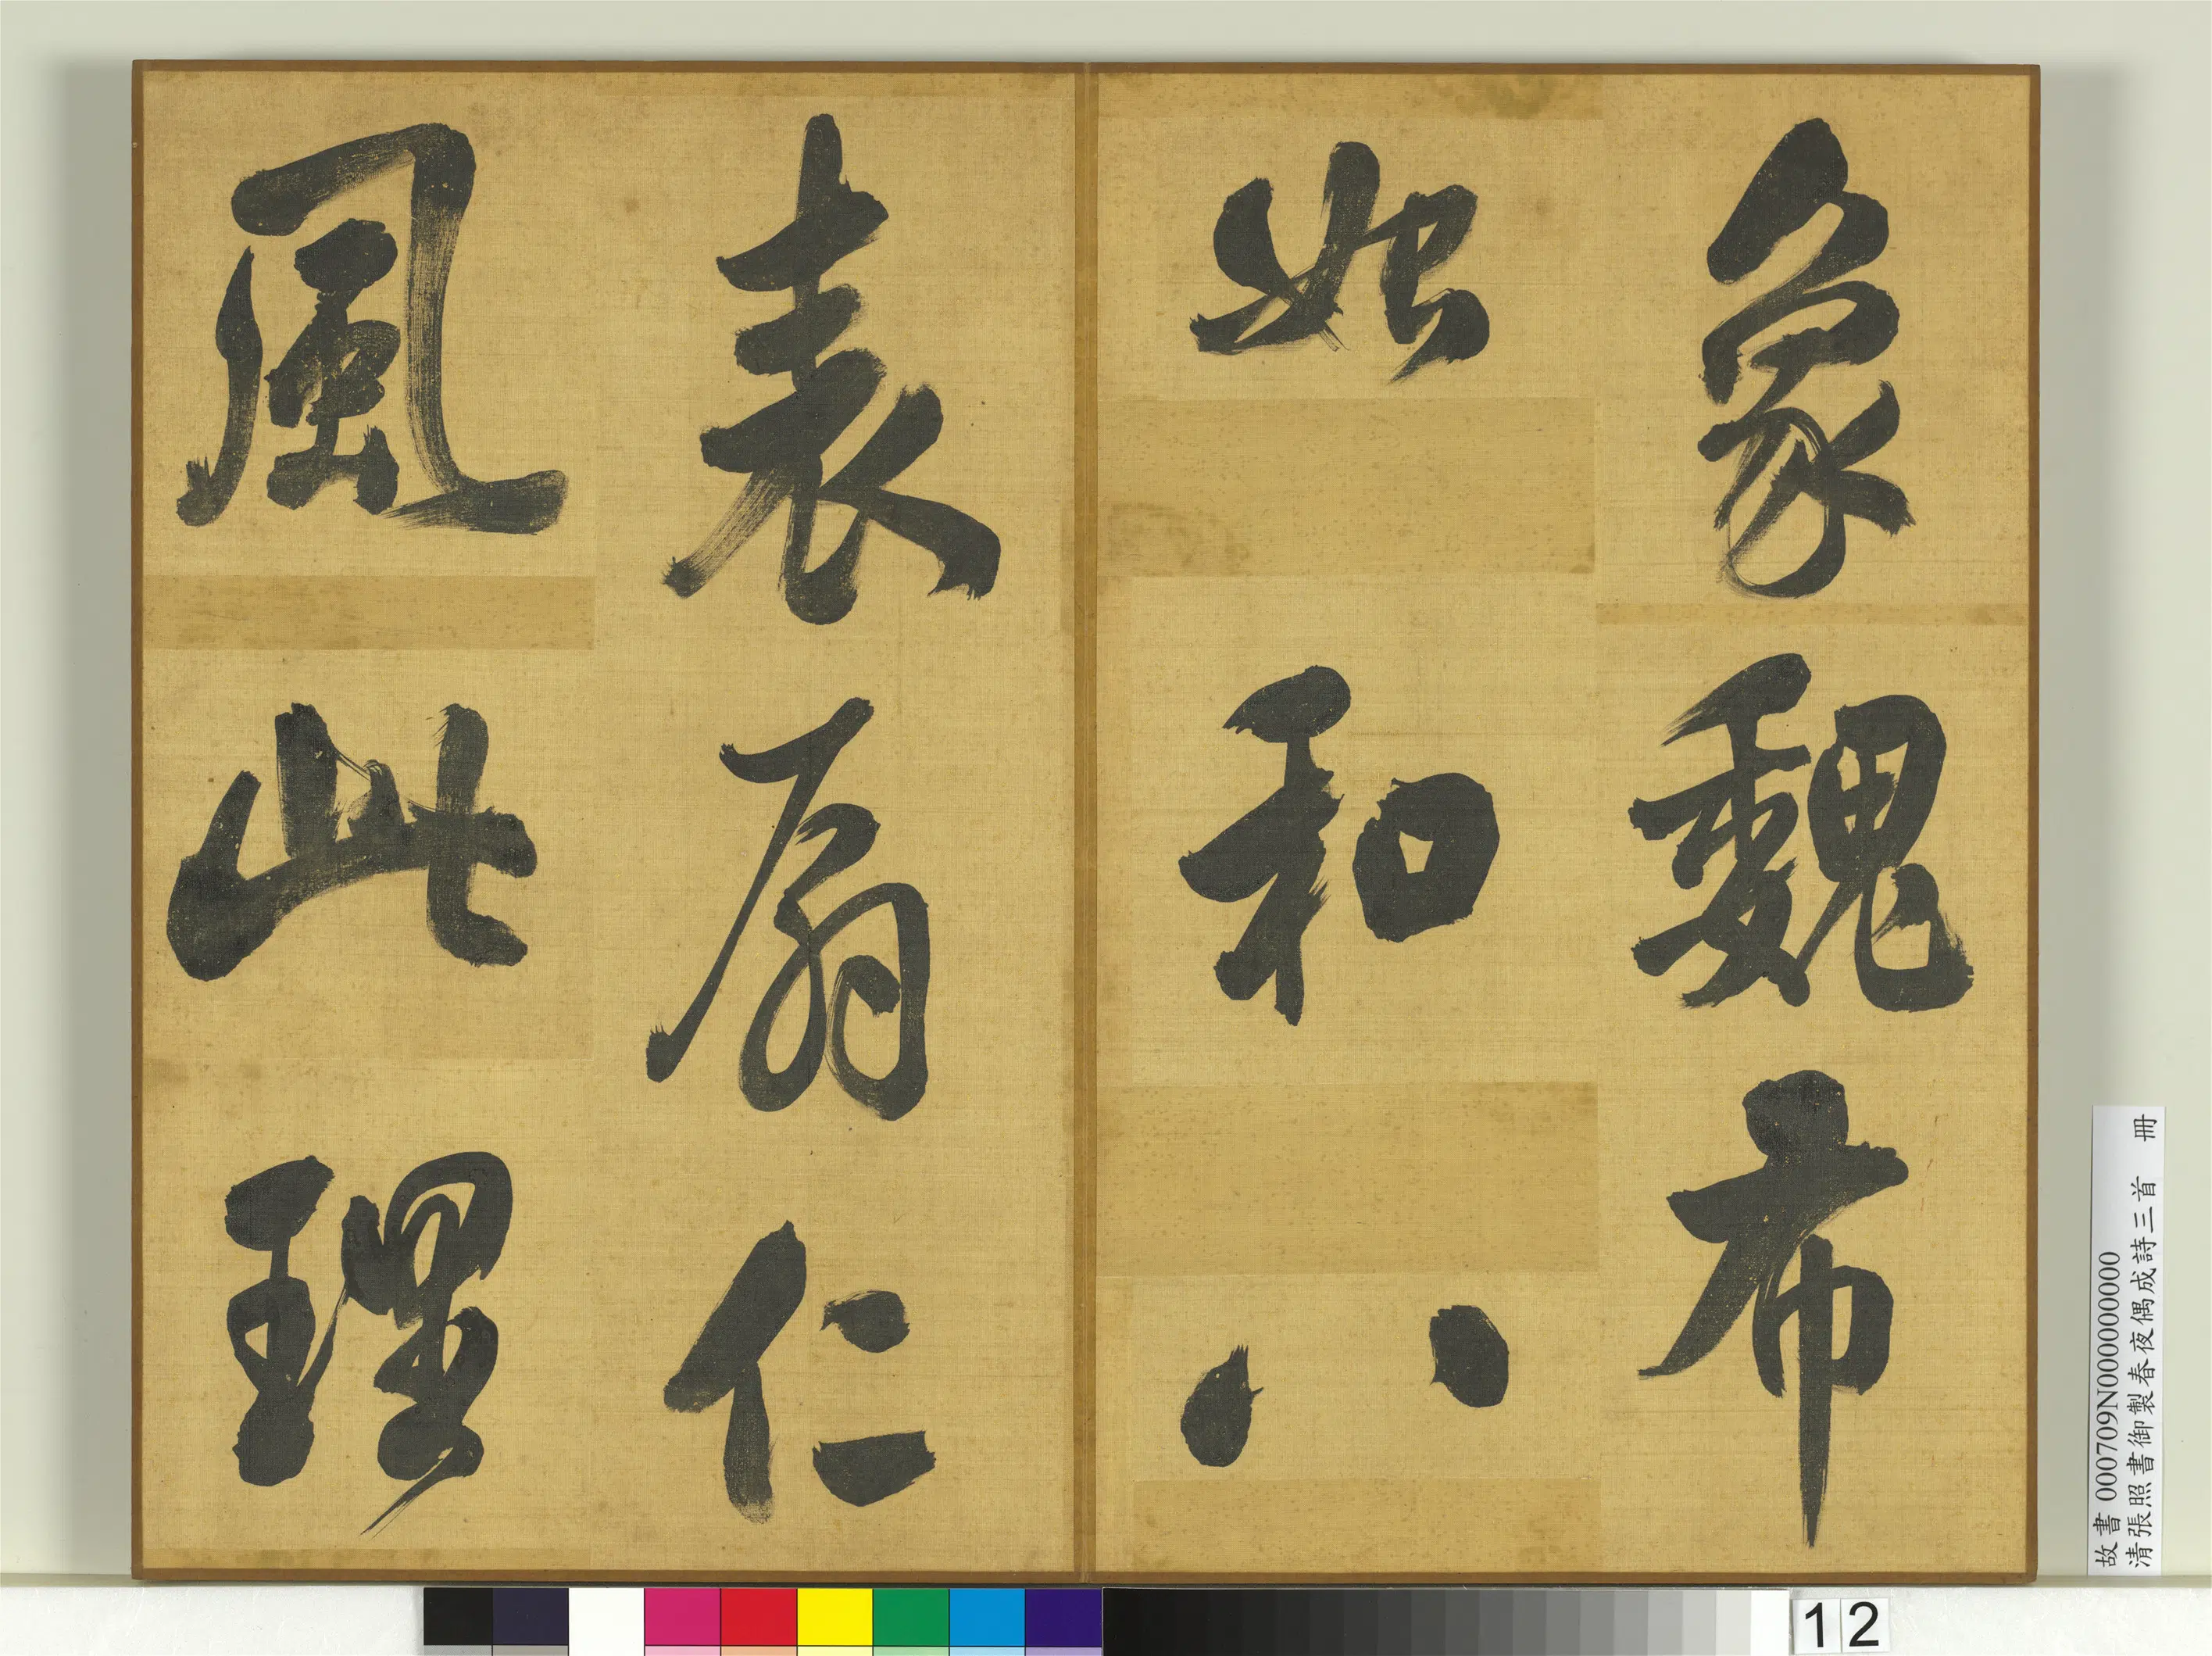 象魏布
始和八
表扇仁
風此理
故書 000709N000000000
清張照書御製春夜偶成詩三首 冊
12